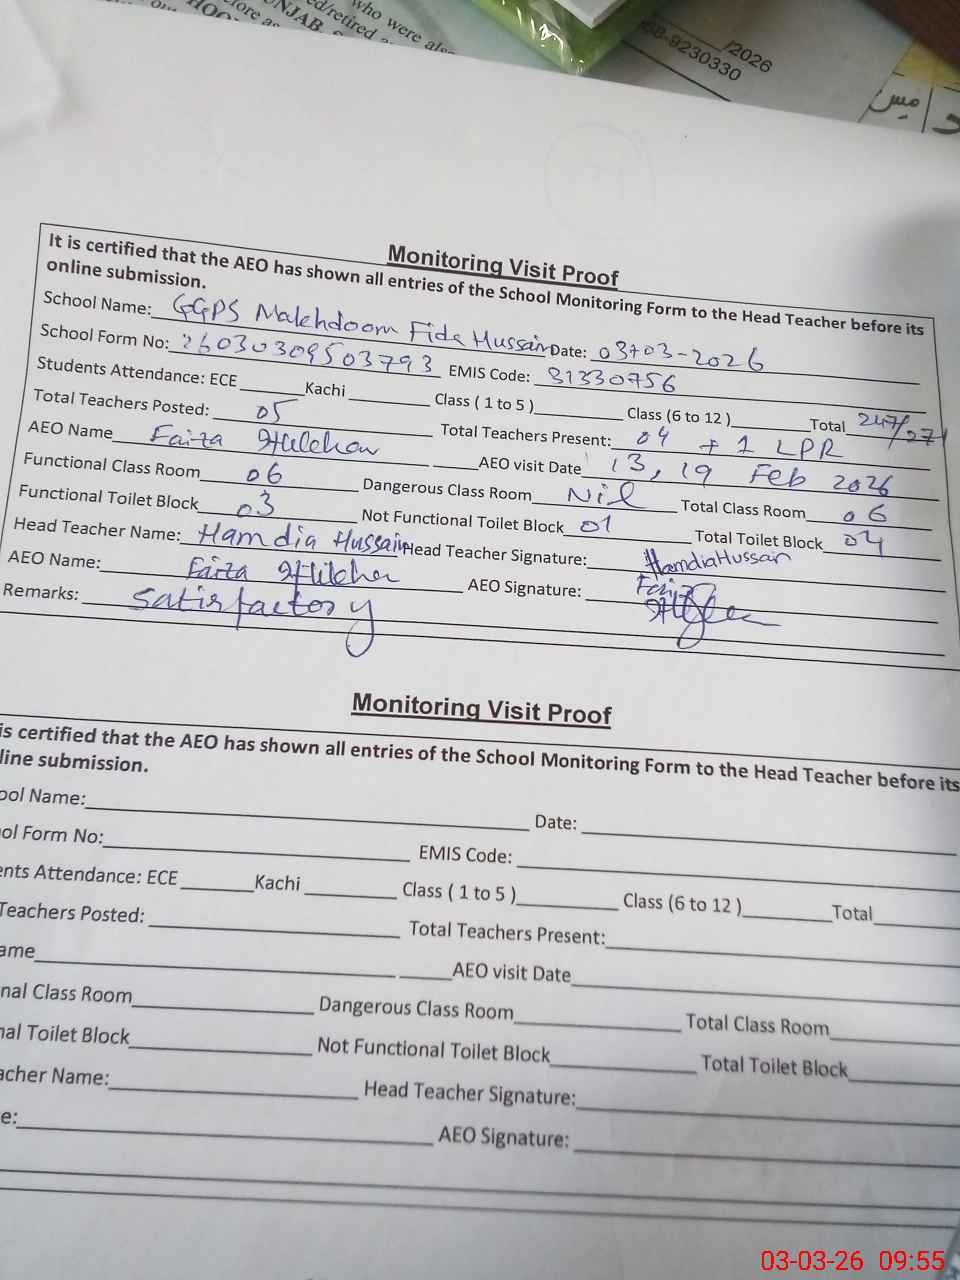 who were also
PUNJAB
ed/retired
fore as
/2026
68-9230330
میں
Monitoring Visit Proof
It is certified that the AEO has shown all entries of the School Monitoring Form to the Head Teacher before its
online submission.
School Name: GGPS Makhdoom Fida Hussain Date: 03-03-2026
School Form No: 26030309503793 EMIS Code: 31330756
Students Attendance: ECE ______ Kachi ______ Class ( 1 to 5 ) ______ Class (6 to 12 ) ______ Total 247/271
Total Teachers Posted: 05 Total Teachers Present: 04 + 1 LPR
AEO Name Faiza AEO visit Date 13, 19 Feb 2026
Functional Class Room 06 Dangerous Class Room Nil Total Class Room 06
Functional Toilet Block 03 Not Functional Toilet Block 01 Total Toilet Block 04
Head Teacher Name: Hamdia Hussain Head Teacher Signature: Hamdia Hussain
AEO Name: Faiza AEO Signature: Faiza
Remarks: Satisfactory
Monitoring Visit Proof
is certified that the AEO has shown all entries of the School Monitoring Form to the Head Teacher before its
line submission.
ool Name: ______ Date: ______
ol Form No: ______ EMIS Code: ______
ents Attendance: ECE ______ Kachi ______ Class ( 1 to 5 ) ______ Class (6 to 12 ) ______ Total ______
Teachers Posted: ______ Total Teachers Present: ______
ame ______ AEO visit Date ______
nal Class Room ______ Dangerous Class Room ______ Total Class Room ______
nal Toilet Block ______ Not Functional Toilet Block ______ Total Toilet Block ______
acher Name: ______ Head Teacher Signature: ______
e: ______ AEO Signature: ______
03-03-26 09:55